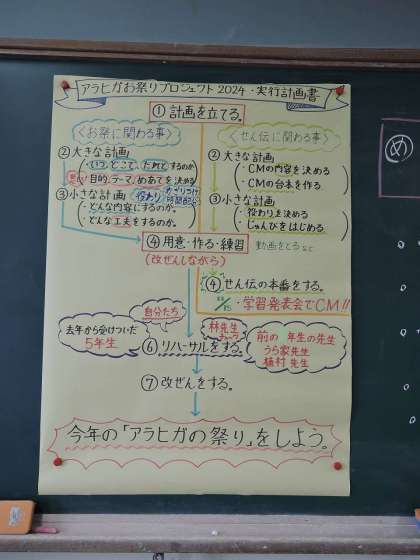 アラヒガお祭りプロジェクト2024・実行計画書
①計画を立てる。
〈お祭に関わる事〉
②大きな計画
・いつ、どこで、だれとするのか
目的、テーマ、めあてを決める
③小さな計画
役わり
時間配分
・どんな内容にするのか。
・どんな工夫をするのか。
〈せん伝に関わる事〉
②大きな計画
・CMの内容を決める
・CMの台本を作る
③小さな計画
・役わりを決める
・じゅんびをはじめる
④用意・作る・練習
(改ぜんしながら)
動画をとるなど
④せん伝の本番をする。
・学習発表会でCM!!
自分たち
去年から受けついだ
5年生
林先生
前の 年生の先生
うら家先生
植村先生
⑥リハーサルをする。
⑦改ぜんをする。
今年の「アラヒガの祭り」をしよう。
め